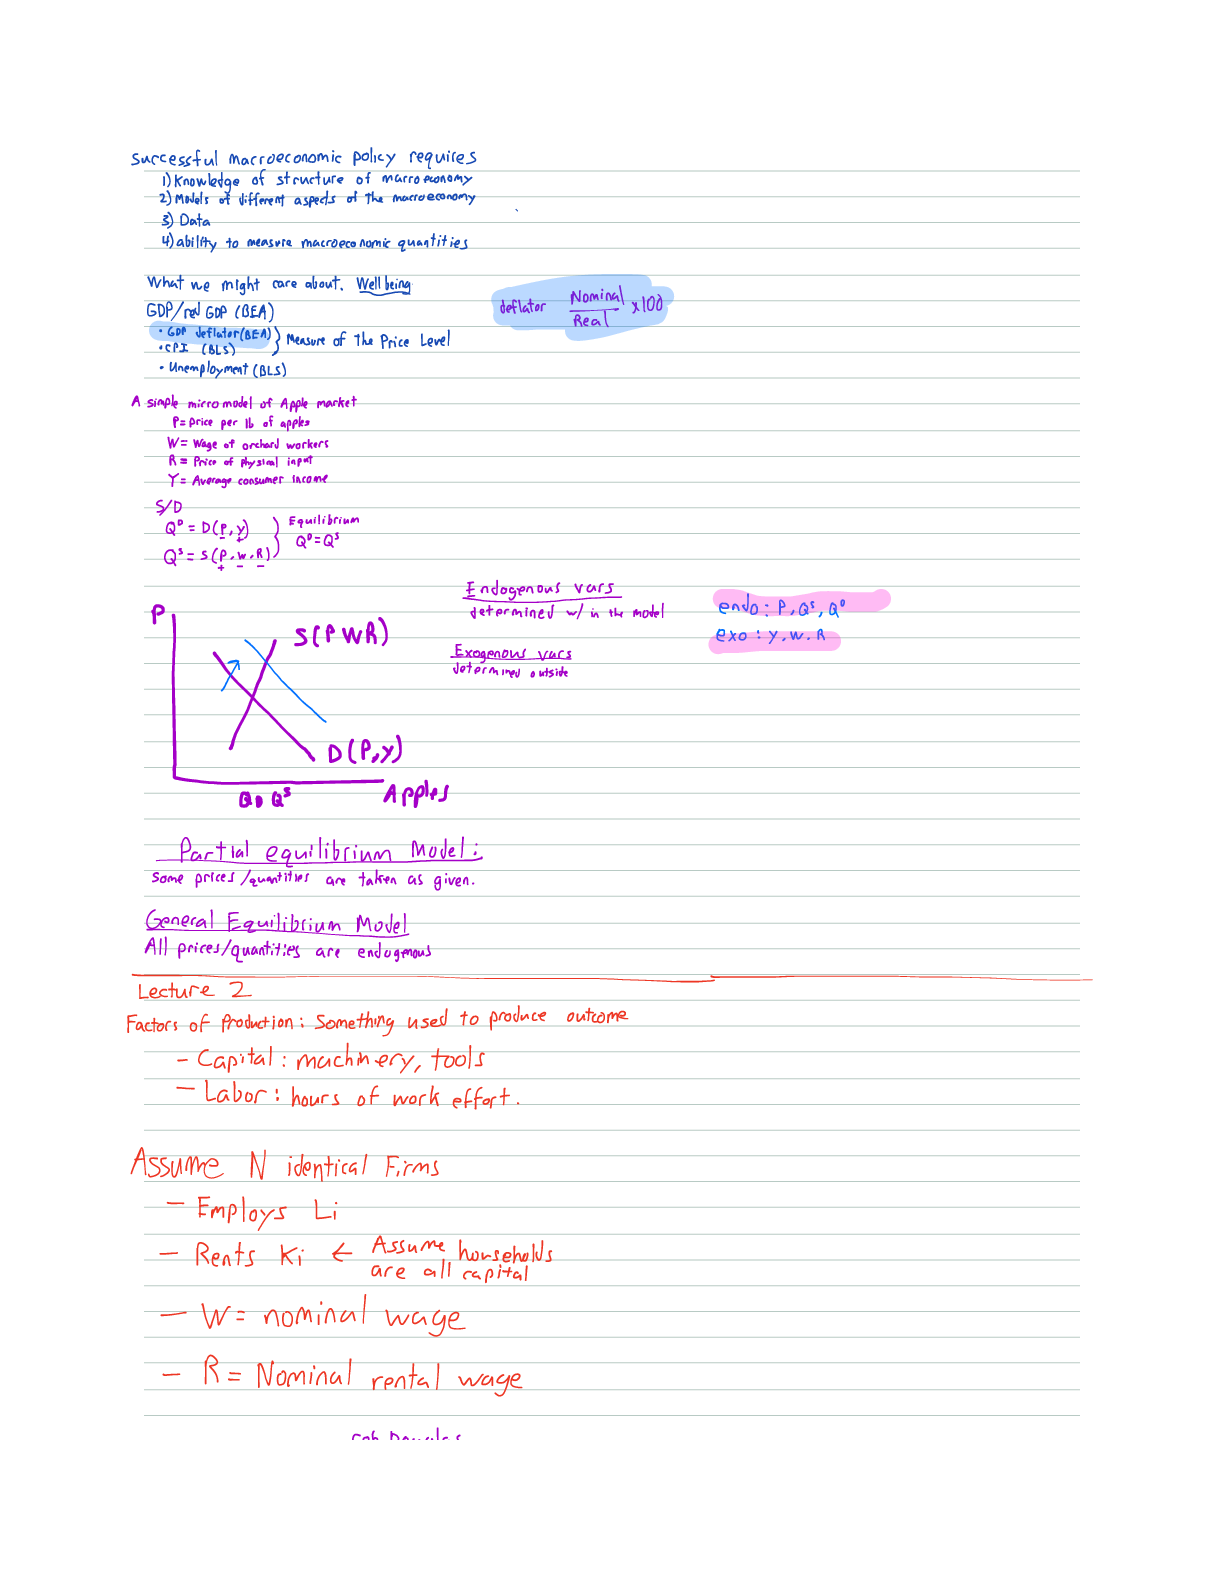 Successful macroeconomic policy requires
1) Knowledge of structure of macroeconomy
2) Models of different aspects of the macroeconomy
3) Data
4) ability to measure macroeconomic quantities
What we might care about. Well being
GDP/real GDP (BEA)
• GDP deflator (BEA)
• CPI (BLS)
} Measure of The Price Level
• Unemployment (BLS)
deflator Nominal/Real x100
A simple micro model of Apple market
P = price per lb of apples
W = Wage of orchard workers
R = Price of physical input
Y = Average consumer income
S/D
Qᴰ = D(P, y)
- +
Qˢ = S(P, w, R)
+ - -
} Equilibrium
Qᴰ = Qˢ
Endogenous vars
determined w/ in the model
Exogenous vars
determined outside
endo: P, Qˢ, Qᴰ
exo: y, w, R
P
S(P W R)
D(P, y)
QD Qˢ
Apples
Partial equilibrium Model:
Some prices/quantities are taken as given.
General Equilibrium Model
All prices/quantities are endogenous
Lecture 2
Factors of Production: Something used to produce outcome
- Capital: machinery, tools
- Labor: hours of work effort.
Assume N identical Firms
- Employs Li
- Rents Ki ← Assume households
are all capital
- W = nominal wage
- R = Nominal rental wage